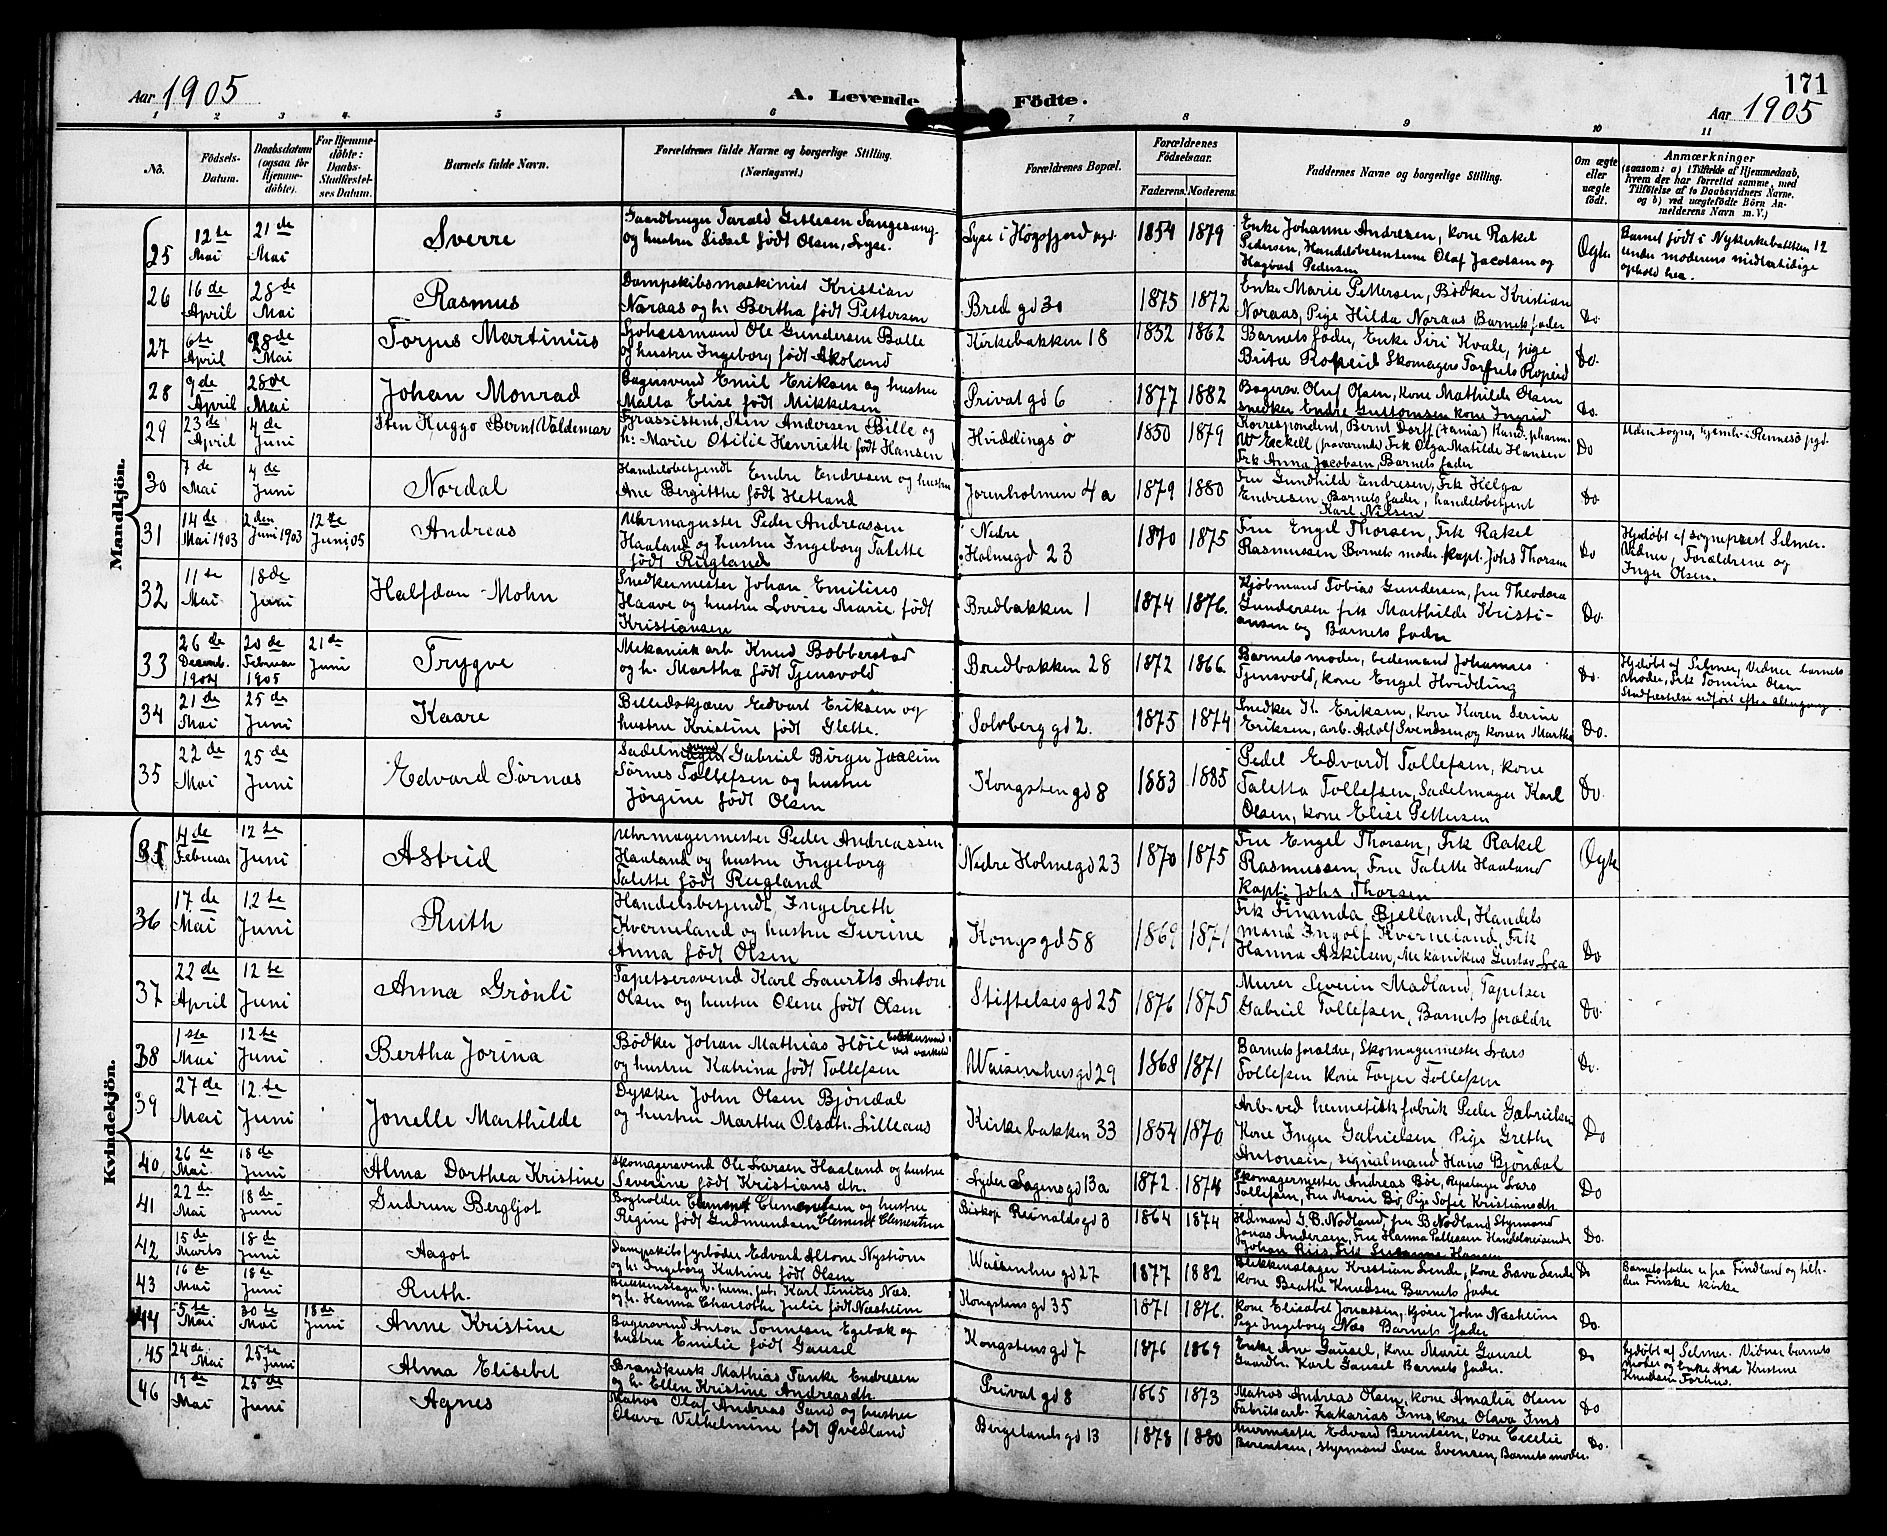 171
Aar 1905
A. Levende Födte.
Aar 1905
1 2 3 4 5 6 7 8 9 10 11
No.
Födsels-Datum.
Daabsdatum (ogsaa for Hjemmedöbte).
For Hjemmedöbte: Daabs-Stadfæstelses Datum.
Barnets fulde Navn.
Forældrenes fulde Navne og borgerlige Stilling. (Næringsvei.)
Forældrenes Bopæl.
Forældrenes Födselsaar.
Faderens. Moderens.
Faddernes Navne og borgerlige Stilling.
Om ægte eller uægte født.
Anmærkninger
(saasom: a) i Tilfælde af Hjemmedaab, hvem der har forrettet samme, med Tilføielse af to Daabsvidners Navne, og b) ved uægtefødte Börn Anmelderens Navn m. V.)
Mandkjön.
25 12te Mai 21de Mai Sverre
Gaardbruger Tarald Gitlesen Sangesang og hustru Sidsel født Olsen, Lyse.
Lyse i Högsfjord pgd 1854 1879
Enke Johanne Andresen, kone Rakel Pedersen, Handelsbetjent Olaf Jacobsen og Hagbart Pedersen
Ægte
Barnet født i Nykirkebakken 12 under moderens midlertidige ophold her.
26 16de April 28de Mai Rasmus
Dampskibsmaskinist Kristian Noraas og h. Bertha født Pettersen
Bred gd 30 1875 1872
Enke Marie Pettersen, Bödker Kristian Noraas, Pige Hilda Noraas Barnets fader
Do.
27 6te April 28de Mai Torjus Martinius
Sjøhusmand Ole Gundersen Balle og hustru Ingeborg født Skoland
Kirkebakken 18 1852 1862
Barnets fader, Enke Siri Kvale, pige Brita Ropeid Skomagers Torfrets Ropeid
Do.
28 9de April 28de Mai Johan Monrad
Bagersvend Emil Eriksen og hustru Malla Elise født Mikkelsen
Privat gd 6 1877 1882
Bagersv. Oluf Olsen, kone Mathilde Olsen snedker Endre Guttormsen kone Ingrid
Do.
29 23de April 4de Juni Sten Huggo Bernt Valdemar
Fyrassistent, Sten Andersen Bille og h. Marie Otilie Henriette født Hansen
Hviddingsö 1850 1879
Korrespondent, Bernt Dorff W Eckell (fraværende) Frk Olga Matilde Hansen Frk Anna Jacobsen, Barnets fader
Do
Udensogns, hjemh. i Rennesö pgd
30 7de Mai 4de Juni Nordal
Handelsbetjendt Endre Endresen og hustru Ane Bergitthe født Hetland
Jorenholmen 4a 1879 1880
Fru Gundhild Endresen, Frk Helga Endresen, Barnets fader, handelsbetjent Karl Nilsen
Do
31 14de Mai 1903 2den Juni 1903 12te Juni, 05 Andreas
Uhrmagester Peder Andreassen Haaland og hustru Ingeborg Talette født Rugland
Nedre Holmegd 23 1870 1875
Fru Engel Thorsen, Frk Rakel Rasmussen Barnets moder Kapt. Johs Thorsen
Do
Hjdöbt af sogneprest Selmer. Vidner, Forældrene og Inger Olsen.
32 11te Mai 18de Juni Halfdan Mohn
Snedkermester Johan Emilius Haave og hustru Lovise Marie født Kristiansen
Bredbakken 1 1874 1876.
Kjöbmand Tobias Gundersen, fru Theodora Gundersen frk Marthilde Kristiansen og Barnets fader
Do.
33 26de Decemb. 1904 20de Februar 1905 21de Juni Trygve
Mekanisk arb Knud Bobberstad og h. Martha født Tjensvold
Bredbakken 28 1872 1866.
Barnets moder, bedemand Johannes Tjensvold, kone Engel Hvidding
Do.
Hjdöbt af Selmer, Vidner barnets moder, Frk Tomine Olsen Stadfæstelse udført efter altergang
34 21de Mai 25de Juni Kaare
Billedskjærer Edvart Eriksen og hustru Kristine født Glette.
Solvberg gd 2. 1875 1874
Snedker K. Eriksen, kone Karen Serine Eriksen, arb. Adolf Svendsen, og konen Martha
Do.
35 22de Mai 25de Juni Edvard Sörnæs
Gabriel Börger Joakim Sörnes Tollefsen og hustru Jörgine født Olsen
Kongsten gd 8 1883 1885
Pedel Edvardt Tollefsen, kone Taletta Tollefsen, Sadelmager Karl Olsen, kone Elise Pettersen
Do.
Kvindekjön.
35 4de Februar 12te Juni Astrid
Uhrmagermester Peder Andreassen Haaland og hustru Ingeborg Talette født Rugland
Nedre Holmegd 23 1870 1875
Fru Engel Thorsen, Frk Rakel Rasmussen, Fru Talette Haaland Kapt. Johs Thorsen
Ægte
36 17de Mai 12te Juni Ruth
Handelsbetjendt, Ingebreth Kverneland og hustru Gurine Anna født Olsen
Kongsgd 58 1869 1871
Frk Finanda Bjelland, Handelsmand Ingolf Kverneland, Frk Hanna Askilsen, Mekanikus Gustav Lea
Do
37 22de April 12te Juni Anna Grönli
Tapetsersvend Karl Laurits Anton Olsen og hustru Oline født Olsen
Stiftelsesgd 25 1876 1875
Murer Severin Madland, Tapetser Gabriel Tollefsen, Barnets forældre
Do.
38 1ste Mai 12te Juni Bertha Jorina
Bödker Johan Mathias Höie og hustru Katrina født Tollefsen
Waisenhusgd 29 1868 1871
Barnets forældre, Skomagermester Lars Tollefsen kone Torger Tollefsen
Do.
39 27de Mai 12te Juni Jonelle Marthilde
Dykker John Olsen Bjöndal og hustru Martha Olsdtr. Lilleaas
Kirkebakken 33 1854 1870
Arb. ved hermetisk fabrik Peder Gabrielsen Kone Inger Gabrielsen, Pige Grethe Antonsen, signalmand Hans Bjöndal
Do
40 26de Mai. 18de Juni Alma Dorthea Kristine
Skomagersvend Ole Larsen Haaland og hustru Severine født Kristians dtr.
Lyder Sagensgd 13a 1872. 1874
Skomagermester Andreas Böe, Repslager Lars Tollefsen, Fru Marie Bö, Pige Sofie Kristiansdtr.
Do
41 22de Mai 18de Juni Gudrun Bergljot
Bogholder Clement Clementsen og hustru Regine født Gudmundsen Clement Clementsen
Biskop Reinaldsgd 3 1864 1874
Hdmand G. B. Nodland, fru B Nodland, Styrmand Jonas Andersen, Fru Hanna Pallesen Handelsreisende Johan Riis, Frk Susanne Hansen
Do.
42 15de Marts 18de Juni Aagot
Dampskibsfyrböder Edvard Altone Nyström og h. Ingeborg Katrine født Olsen
Waisenhus gd 27 1877 1882
Blikkenslager Kristian Lende, kone Lava Lende kone Beathe Knudsen Barnets fader
Do
Barnets fader er fra Findland og tilh. den Finske kirke
43 16de Mai 18de Juni Ruth.
Blikkenslager h. herm. fab. Karl Sinius Næs. og h. Hanna Charlothe Julie født Næsheim
Kongstens gd 35 1871 1876.
kone Elisabet Jonassen, kjörer John Næsheim Pige Ingeborg Næs Barnets fader
Do.
44 5te Mai 30te Mai 18de Juni Anne Kristine
Bagersvend Anton Tonnesen Egebak og hustru Emilie født Gausel
Kongstensgd 7 1876 1869
Enke Ane Gausel, kone Marie Gausel Gaardbr. Karl Gausel Barnets fader.
Do
Hjdöbt af Selmer. Vidner barnets moder og Enke Ana Kristine Knudsen Forhus.
45 24de Mai 25te Juni Alma Elisebet
Brandkusk Mathias Tanke Endresen og h. Ellen Kristine Andreasdtr.
Privat gd 8 1865 1873
Matros Andreas Olsen, kone Amalia Olsen Fabriksarb. Zakarias Ims, kone Olava Ims
Do
46 19de Mai 25de Juni Agnes
Matros Olaf Andreas Sand og hustru Olava Vilhelmine født Qvedland
Bergelandsgd 13 1878 1880
Murmester Edvard Berntsen, kone Cecilie Berentsen, styrmand Sven Svensen, Barnets moder.
Do.